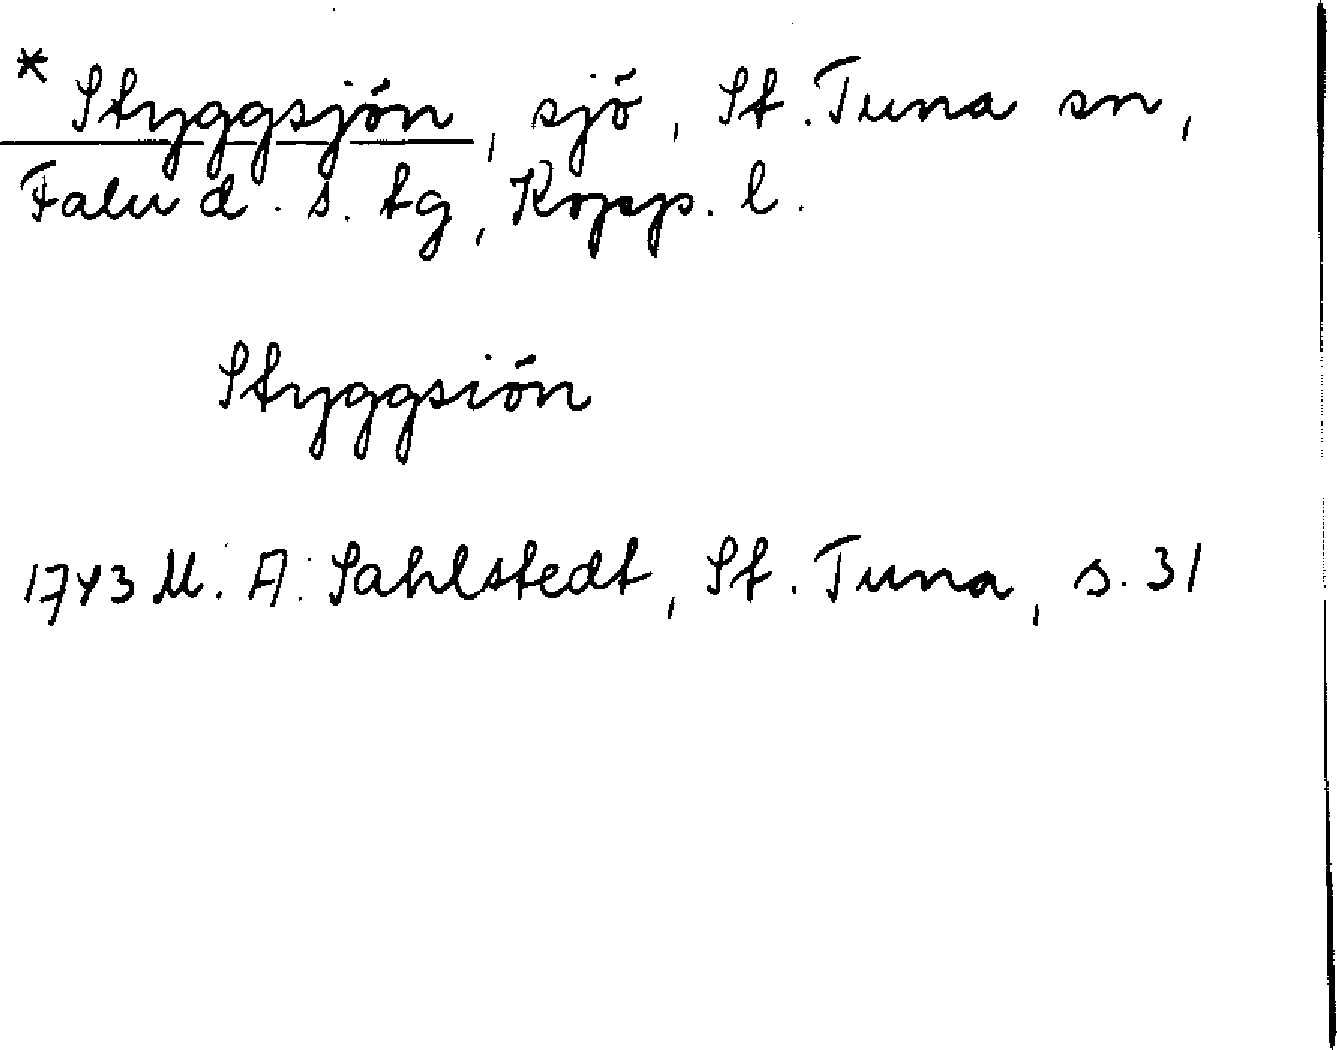 * Styggsjön, sjö, St. Tuna sn,
Falu d. s. tg, Kopp. l.
Styggsiön
1743 M. A. Sahlstedt, St. Tuna, s. 31